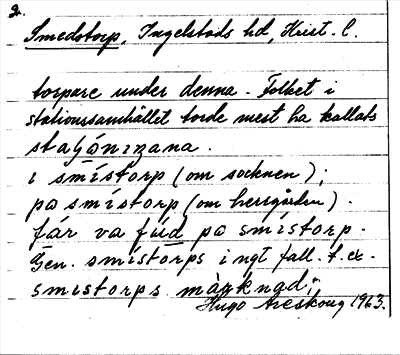 2.
Smedstorp, Ingelstads hd, Krist. l.
torpare under denna. Folket i
stationssamhället torde mest ha kallats
stašónizana.
i smístorp (om socknen);
pa smístorp (om herrgården).
fár va fúd pa smístorp.
Gen. smístorps i ngt fall. t. ex.
smistorps màrknad;
Hugo Areskoug 1963.